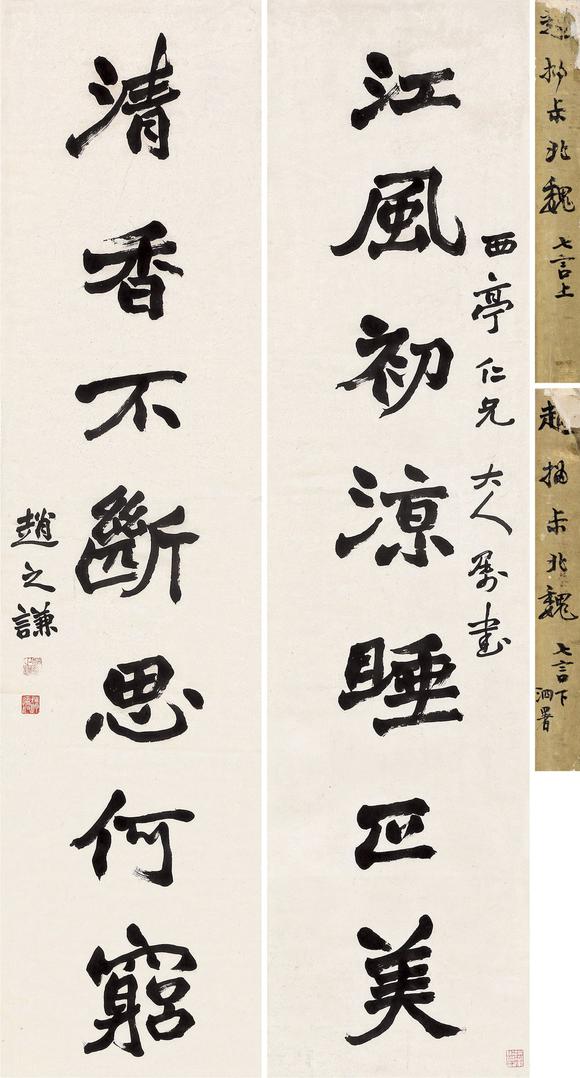 江風初涼睡正美
西亭仁兄大人屬書
清香不斷思何窮
趙之謙
趙撝叔北魏七言上
趙撝叔北魏七言下
泗署